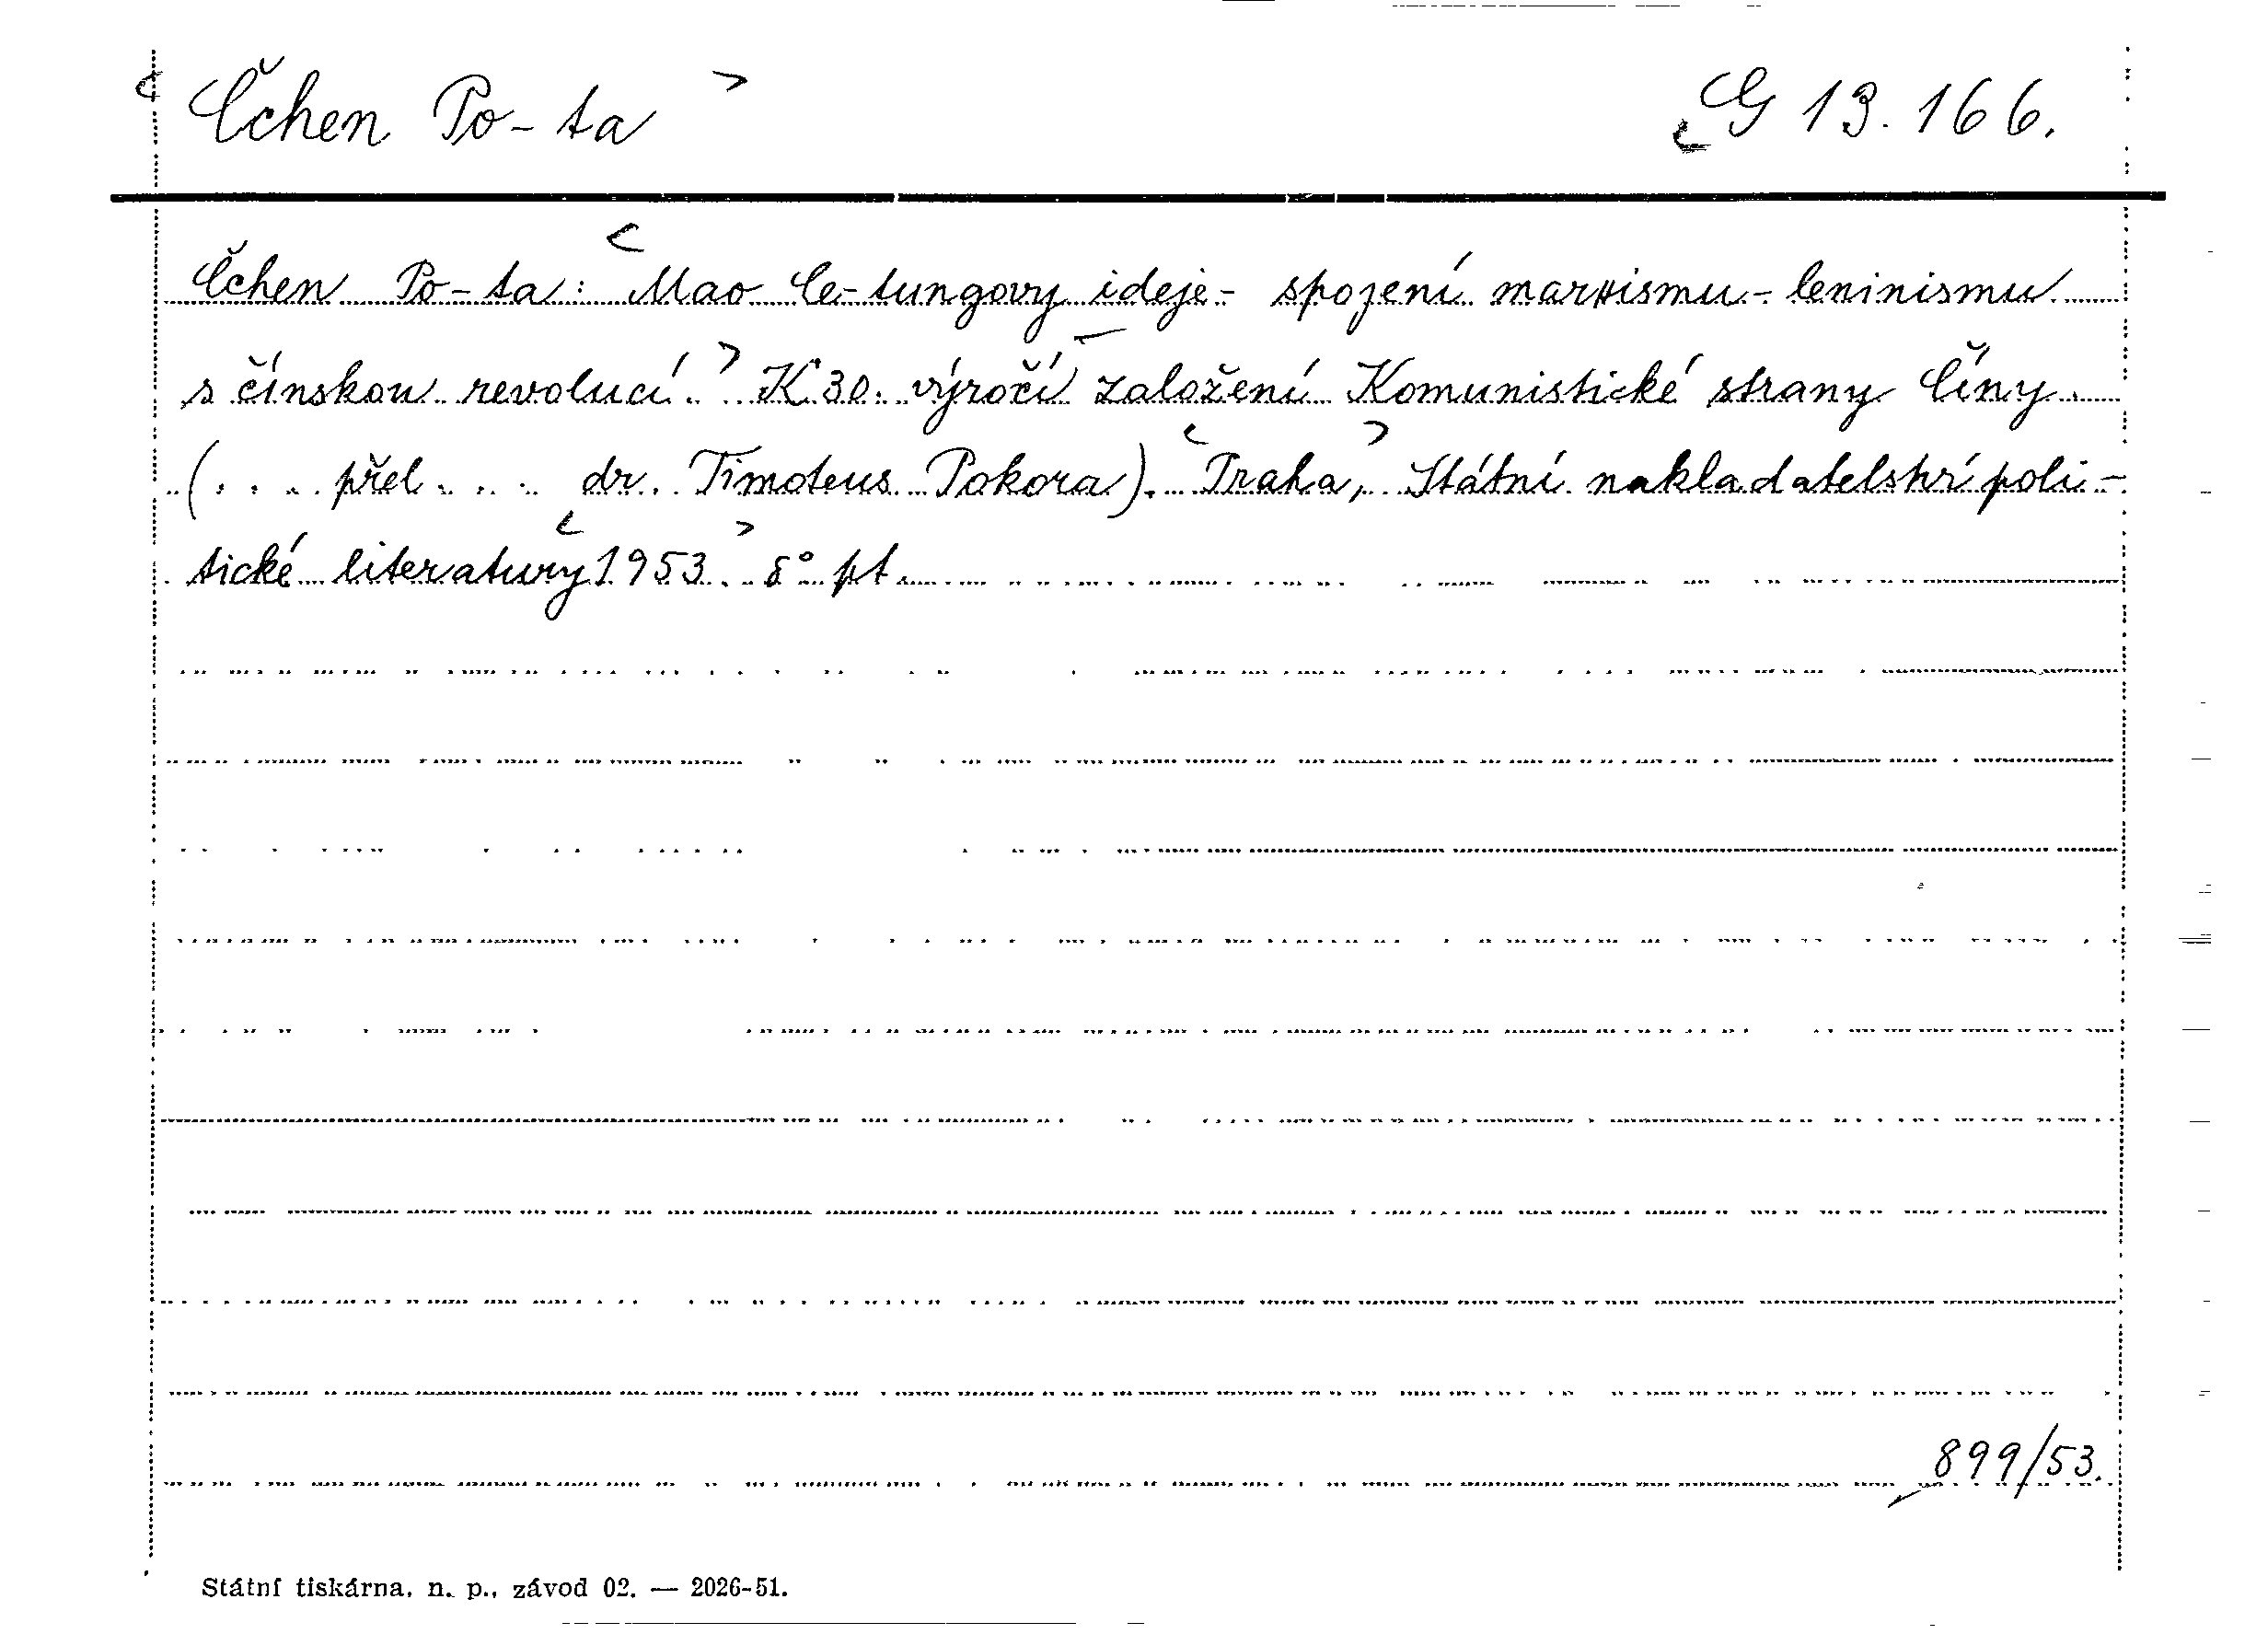 Čchen Po-ta
G 13.166.
Čchen Po-ta: Mao Ce-tungovy ideje - spojení marxismu-leninismu
s čínskou revolucí. K 30. výročí založení Komunistické strany Číny.
(... přel... dr. Timoteus Pokora). Praha, Státní nakladatelství poli-
tické literatury 1953. 8° pt.
899/53.
Státní tiskárna, n. p., závod 02. — 2026-51.